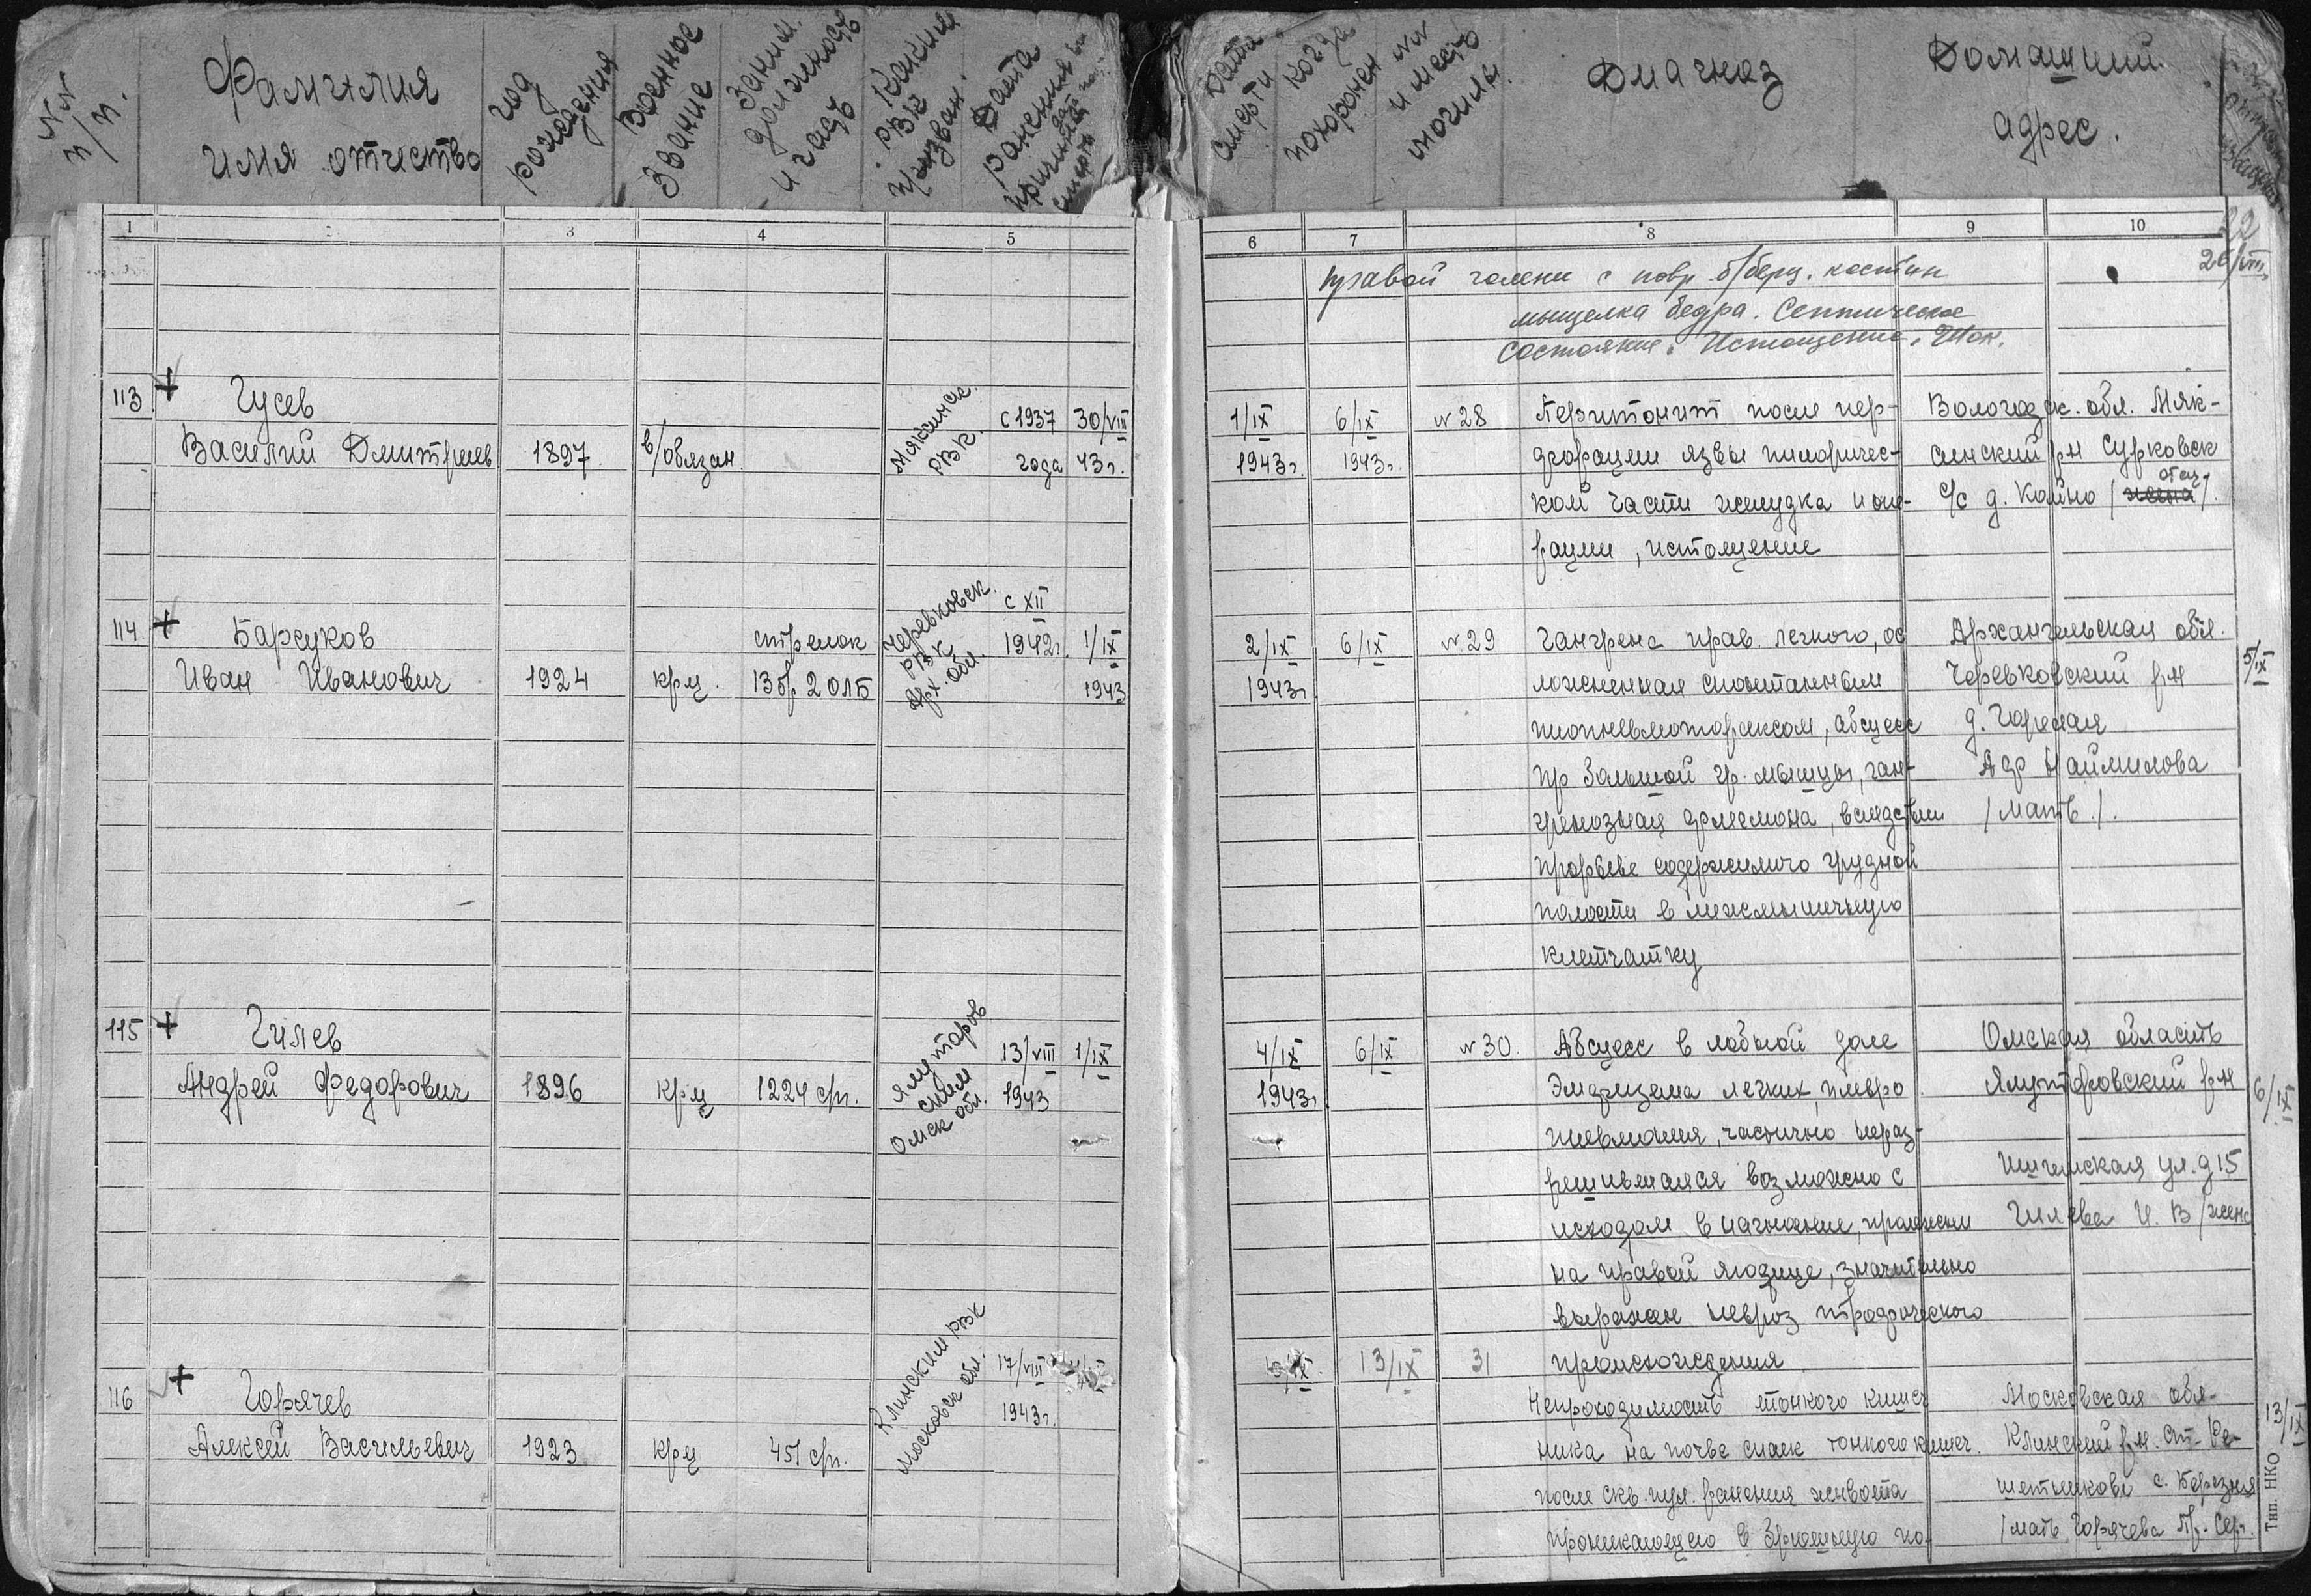 NN п/п.
Фамилия
имя отчество
год рождения
Военное звание
Заним. должность и часть
Каким РВК призван.
Дата ранения
Дата смерти
Когда похоронен
NN и место могилы.
Диагноз
Домашний
адрес.
1 2 3 4 5 6 7 8 9 10
22
26/VIII
правой голени с повр. б/берц. кости и
мыщелка бедра. Септическое
состояние. Истощение. Шок.
113 + Гусев
Василий Дмитриев 1897 в/обязан.
Мяксинск. РВК.
с 1937 года
30/VIII 43 г.
1/IX 1943 г.
6/IX 1943 г.
N 28
Перитонит после пер-
форации язвы пилоричес-
кой части желудка и опе-
рации, истощение
Вологодск. обл. Мяк-
синский р-н Сурковск
с/с д. Кайно / жена отец /.
114 + Барсуков
Иван Иванович 1924 кр-ц.
стрелок
13 бр. 2 ОЛБ
Черевковск. РВК Арх. обл.
с XII 1942 г.
1/IX 1943
2/IX 1943 г
6/IX
N 29
Гангрена прав. легкого, ос
ложненная спонтанным
пиопневмотораксом, абсцесс
пр. большой гр. мышцы, ган-
гренозная флегмона, вследствии
прорыве содержимого грудной
полости в межмышечную
клетчатку
Архангельская обл.
Черевковский р-н
д. Горная
Наймилова
/ мать /.
5/IX
115 + Гилев
Андрей Федорович 1896 кр-ц 1224 сп.
Ялуторов ским Омск обл.
13/VIII 1943
1/IX
4/IX 1943 г
6/IX
N 30.
Абсцесс в лобной доле
Эмфизема легких, плевро
пневмония, частично нераз-
решившаяся возможно с
исходом в нагноение, пролежни
на правой ягодице, значительно
выражен невроз трофического
происхождения
Омская область
Ялуторовский р-н
Ишимская ул. д 15
Гилева И. В / жена
6/IX
116 + Горячев
Алексей Васильевич 1923 кр-ц 451 сп.
Клинским РВК Московск обл.
17/VIII 1943 г.
13/IX
31
Непроходимость тонкого кишеч
ника на почве спаек тонкого кишеч.
после скв. пул. ранения живота
проникающего в брюшную по-
Московская обл-
Клинский р-н. ст. Ре-
шетниково с. Березня
/ мать Горячева Пр. Сер.
13/IX
Тип. НКО